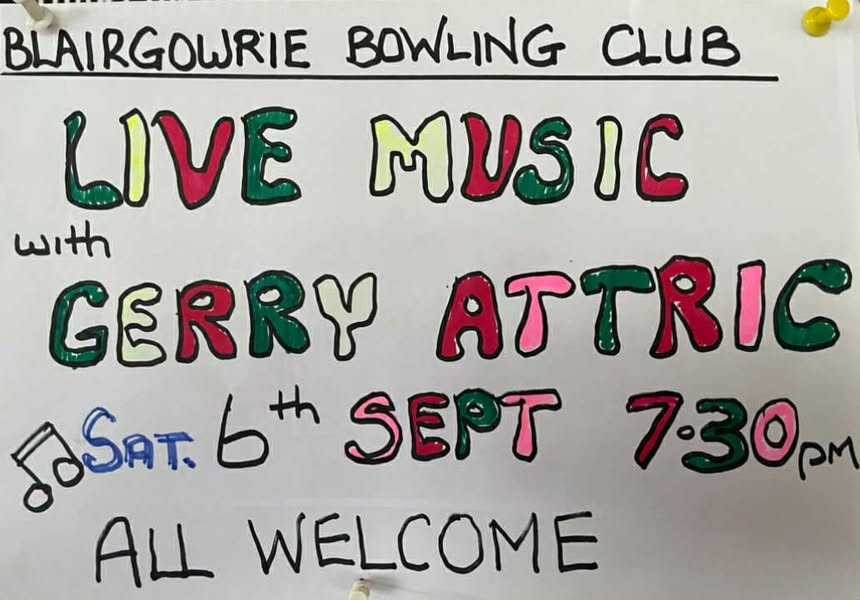 BLAIRGOWRIE BOWLING CLUB
LIVE MUSIC
with
GERRY ATTRIC
SAT. 6th SEPT 7.30pm
ALL WELCOME